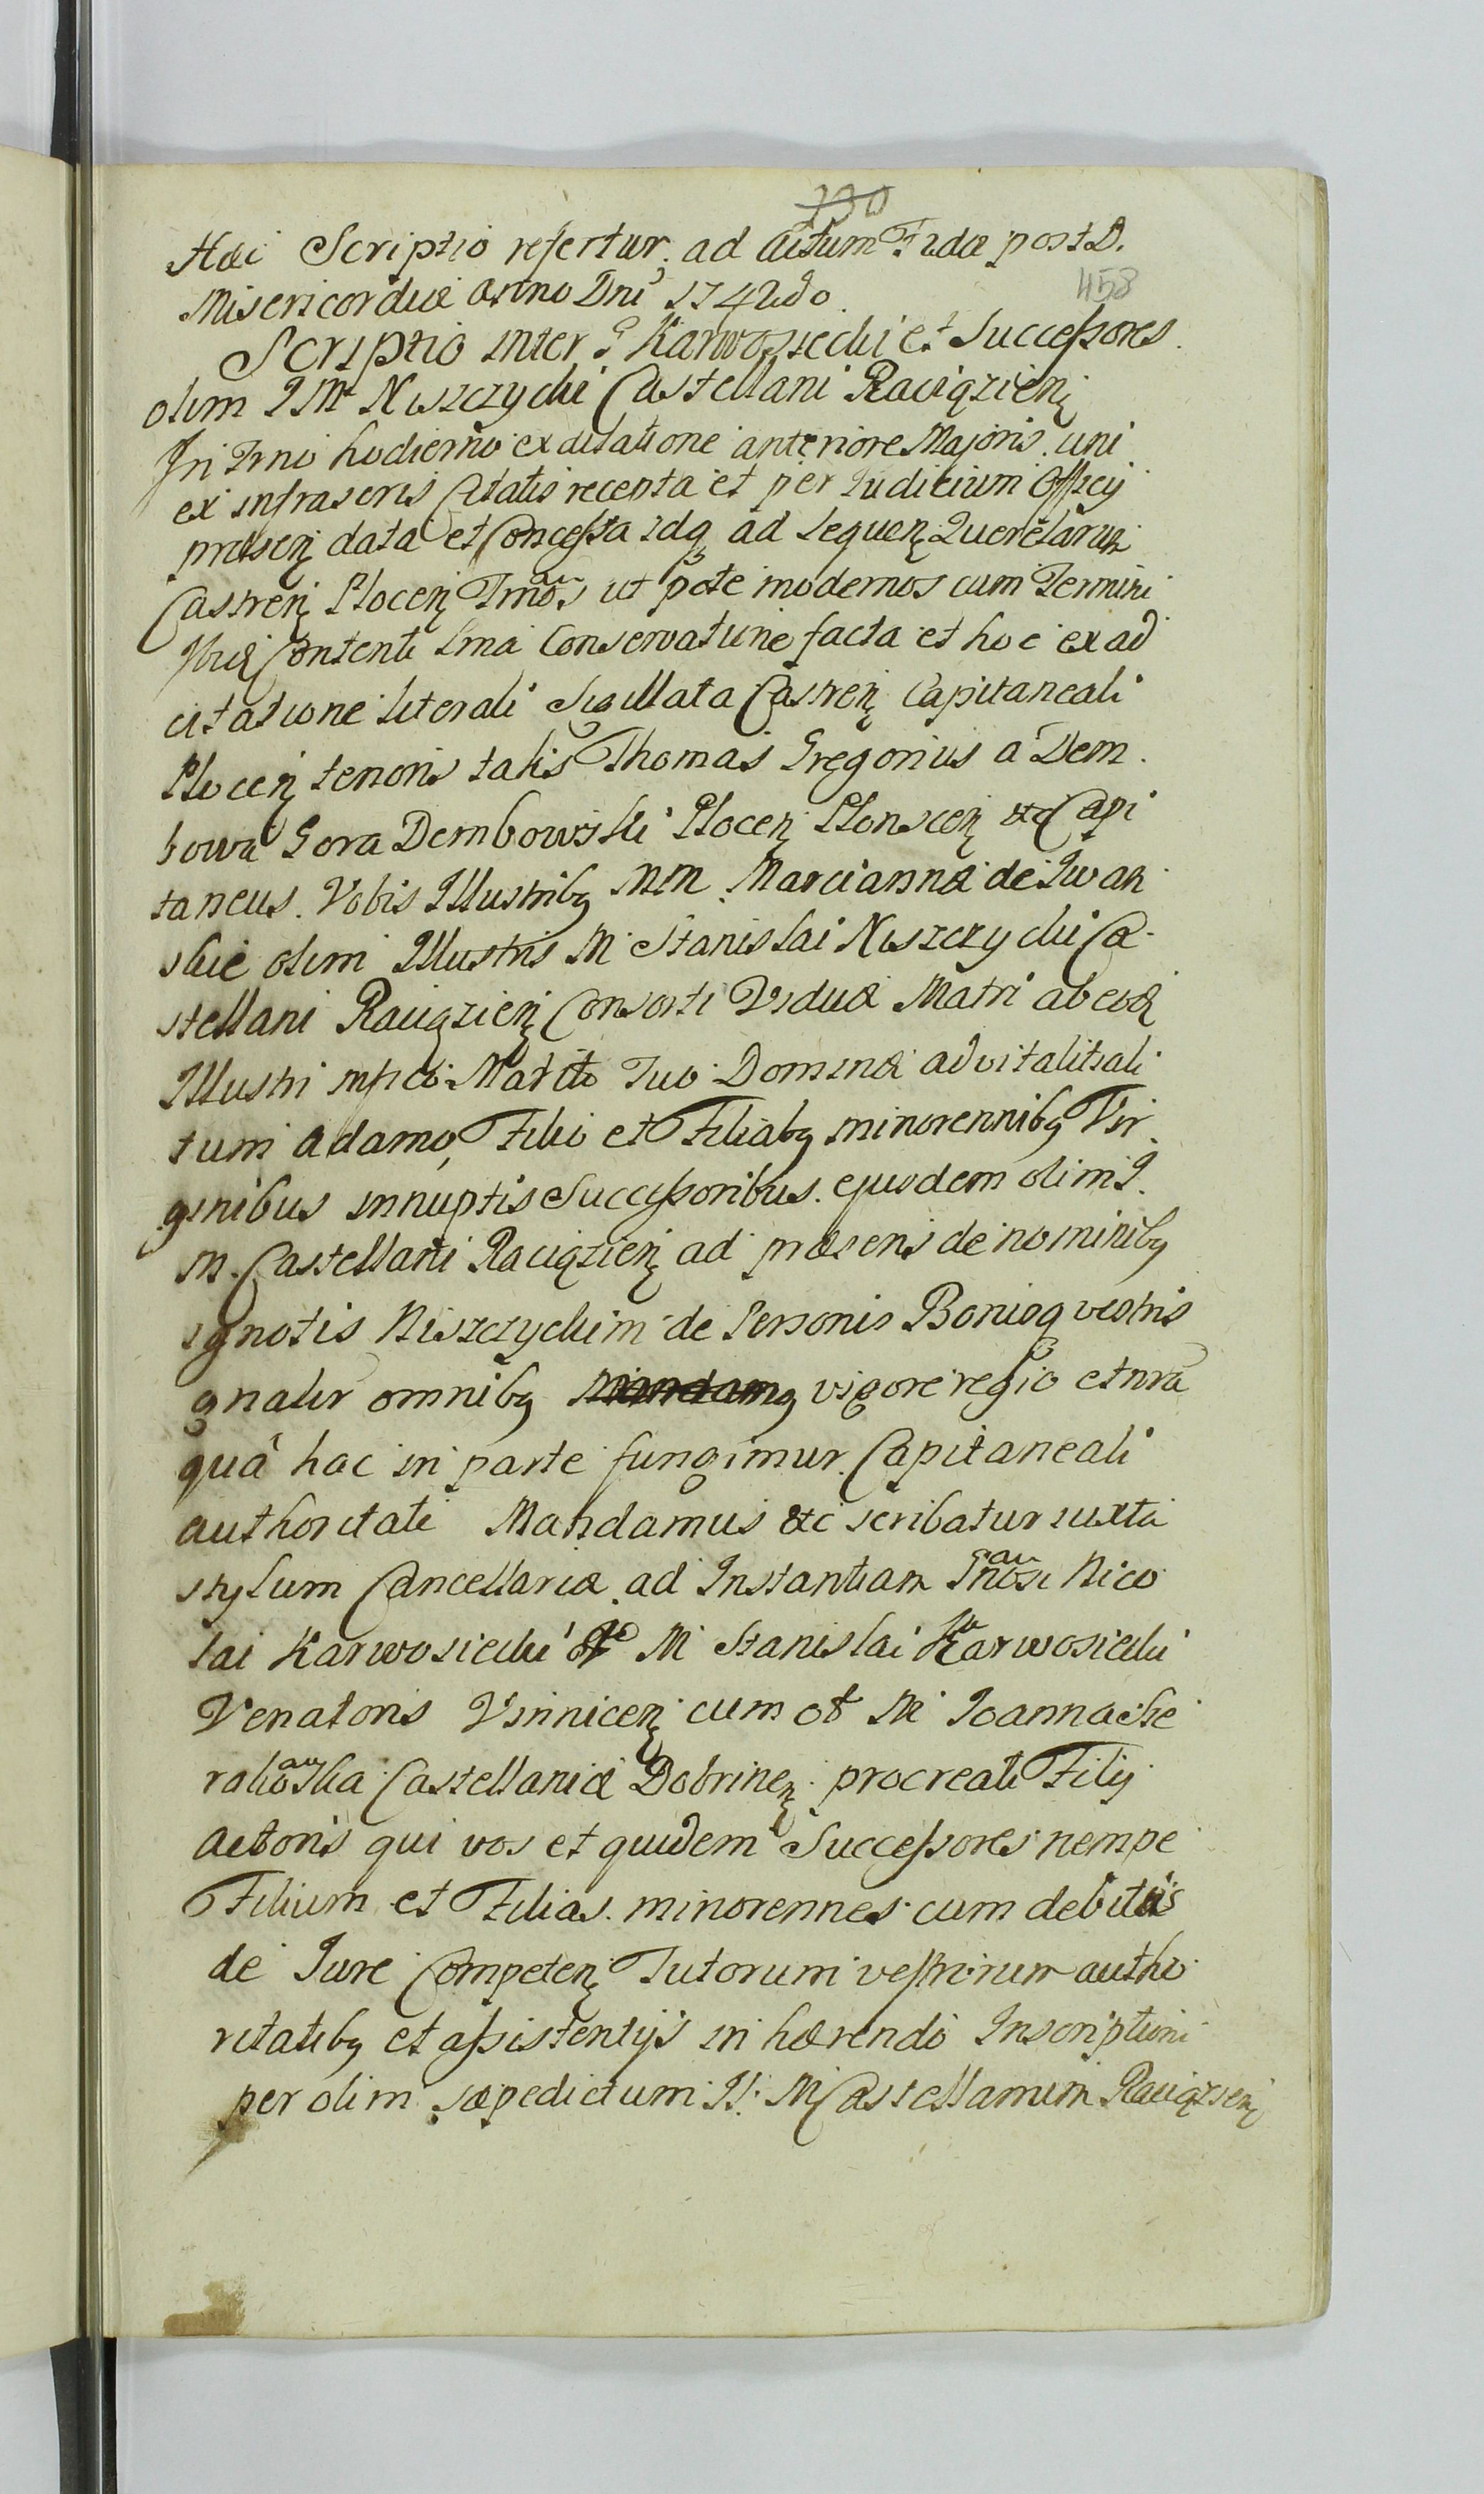 330
Hac Scriptio refertur ad actum Frdæ post D.
Misericordiæ Anno Dni 1742do
458
Scriptio inter G Karwosiecki et Successores
olim I M Niszczycki Castellani Raciązień
In Trno hodierno ex citatione anteriore Majoris uni
ex infrascris Citatis recepta et per Iudicium Officij
præsen data et Concessa idq ad sequen Querelarum
Castren Plocen Trnos ut pote modernos cum Termini
Contenti Conservatione facta et hoc ex ad
citatione literali Sigillata Castren Capitaneali
Plocen tenoris talis Thomas Gregorius a Dem
bowa Gora Dembowski Plocen Plonscen etc Capi
taneus. Vobis Illustribq MM Marciannæ de Iwan
skie olim Illustris M Stanislai Niszczycki Ca
stellani Raciązień Consorti Viduæ Matri ab eod
Illustri mfico Marito suo Dominæ advitalitiali
tum Adamo, Filio et Filiabq minorennibq Vir
ginibus innuptis Successoribus ejusdem olim I.
M. Castellani Raciązień ad præsens de nominibq
ignotis Niszczyckim de Personis Bonisq vestris
gnalir omnibq Mandamq vigore regio et nra
quâ hac in parte fungimur Capitaneali
authoritate Mandamus etc scribatur iuxta
stylum Cancellariæ ad Instantiam Gnosi Nico
lai Karwosiecki M Stanislai Karwosiecki
Venatoris Vinnicen cum M Ioanna Sie
rakowska Castellanica Dobrinen procreati Filij
Actoris qui vos et quidem Successores nempe
Filium et Filias minorennes cum debitis
de Iure Competen Tutorum vestrorum autho
ritatibq et assistentijs in hærendo Inscriptioni
per olim sæpedictum I. M Castellanum Raciązień